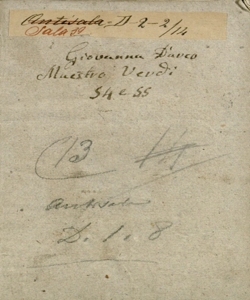 Antisala - D - 2 - 2/14
Sala
Giovanna D'arco
Maestro Verdi
54 e 55
13
Antisala
D. 1. 8